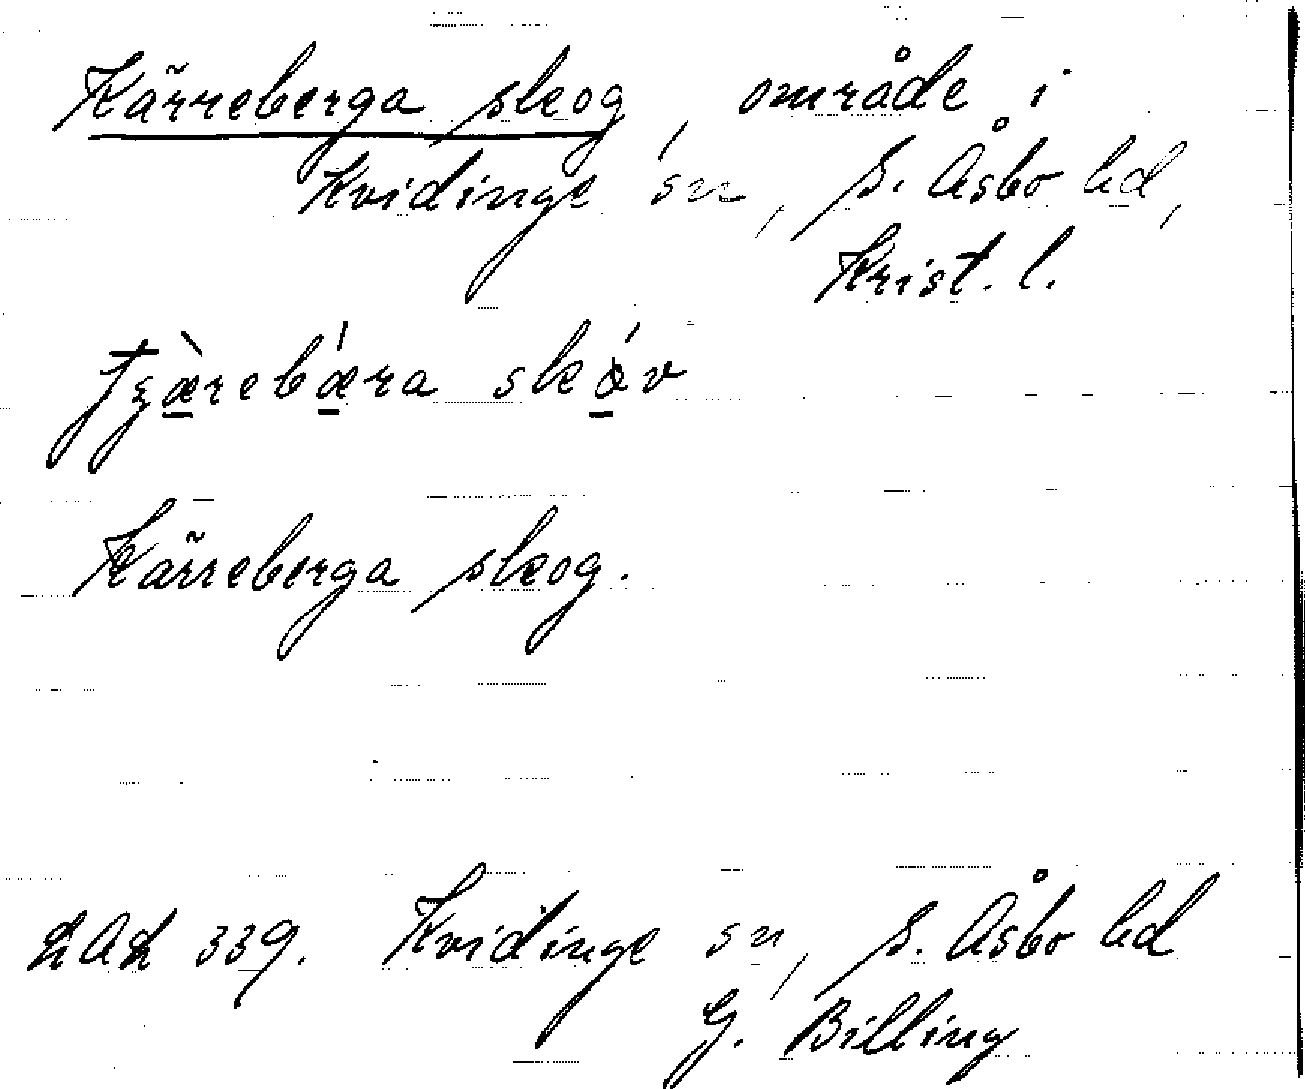 Kärreberga skog, område i
Kvidinge sn, S. Åsbo hd,
Krist. l.
skóv
Kärreberga skog.
LAL 339. Kvidinge sn, S. Åsbo hd
G. Billing